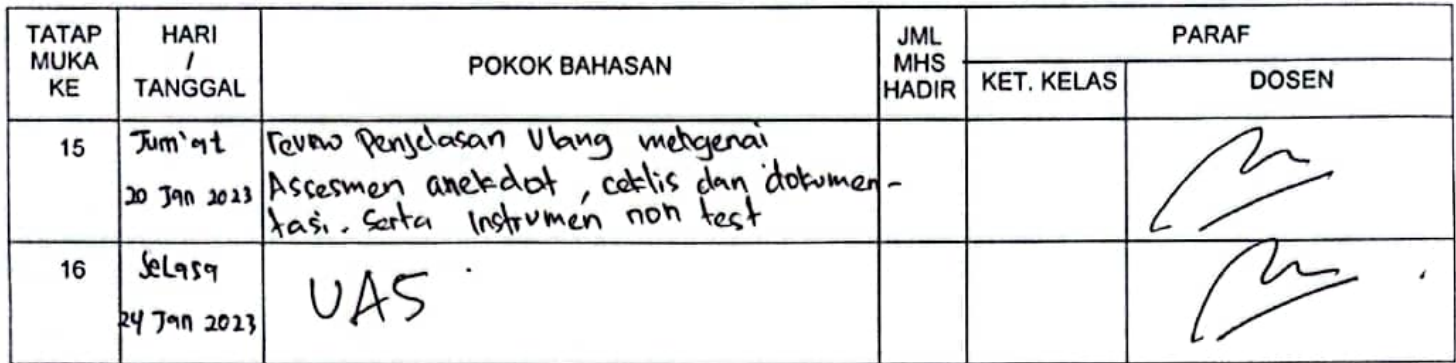 TATAP MUKA KE
HARI / TANGGAL
POKOK BAHASAN
JML MHS HADIR
PARAF
KET. KELAS
DOSEN
15
Jum'at
20 Jan 2023
revew Penjelasan Ulang mengenai
Assesmen anekdot, ceklis dan dokumen-
tasi. Serta Instrumen non test
16
Selasa
24 Jan 2023
UAS